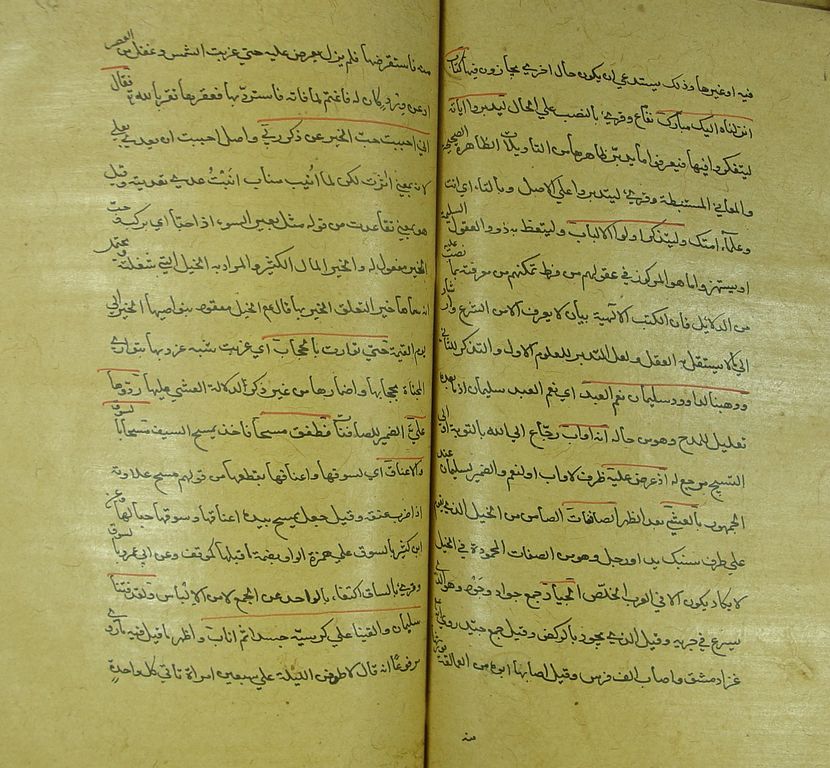 فيه او غيرها وذلك يستدعي ان يكون حال اخري يجازون فيها كتاب
انزلناه اليك مبارك نفاع وقري بالنصب علي الحال ليدبروا اياته
ليتفكروا فيها فيعرفوا ما يدبر ظاهرها من التاويلات الظاهرة الصحيحة
والمعاني المستنبطة وقري ليتدبروا علي الاصل وبالتاء اي انت
وعلماء امتك وليتذكر اولوا الالباب وليتعظ به ذووا العقول السليمة
او يستحضروا ما هو المركوز في عقولهم من فرط تمكنهم من معرفته بما نصب عليه
من الدلائل فان الكتب الالهية بيان لا يعرف الا من الشرع وارشاد
الي ما لا يستقل به العقل ولعل التدبر للعلوم الاول والتذكر للثاني
ووهبنا لداوود سليمان نعم العبد اي نعم العبد سليمان اذ ما بعده
تعليل للمدح وهو من حاله انه اواب رجاع الي الله بالتوبة او الي
التسبيح مرجع له اذ عرض عليه ظرف لاواب او لنعم والضمير لسليمان عند
الجمهور بالعشي بعد الظهر الصافنات الصافن من الخيل الذي يقوم
علي طرف سنبك يد او رجل وهو من الصفات المحمودة في الخيل
لا يكاد يكون الا في العرب الخلص الجياد جمع جواد وجود وهو الذي
يسرع في جريه وقيل الذي يجود بالركض وقيل جمع جيد روي انه
غزا دمشق واصاب الف فرس وقيل اصابها ابوه من العمالقة فورثها
منه
منه فاستعرضها فلم يزل يعرض عليه حتي غربت الشمس وغفل عن العصر
او عن ورد كان له فاغتم لما فاته فاستردها فعقرها تقربا لله فقال
اني احببت حب الخير عن ذكر ربي واصل احببت ان يعدي بعلي
لانه بمعني اثرت لكن لما انيب مناب انبت عدي تعديته وقيل
هو بمعني تقاعدت من قوله مثل بعير السوء اذ احبا اي برك وحب
الخير مفعول له والخير المال الكثير والمراد به الخيل التي شغلته ويحتمل
انه سماها خيرا لتعلق الخير بها قال عم الخيل معقود بنواصيها الخير الي
يوم القيمة حتي توارت بالحجاب اي غربت شبه غروبها بتواري
المخباة بحجابها واضمارها من غير ذكر لدلالة العشي عليها ردوها
علي الضمير للصافنات فطفق مسحا فاخذ يمسح السيف مسحا بالسوق
والاعناق اي بسوقها واعناقها يقطعها من قولهم مسح علاوته
اذا ضرب عنقه وقيل جعل يمسح بيده اعناقها وسوقها حبا لها وعن
ابن كثير بالسوق علي همز الواو بضمة ما قبلها كموقف وعن ابي عمرو بالسووق
وقري بالساق اكتفاء بالواحد عن الجمع لامن الالباس ولقد فتنا
سليمان والقينا علي كرسيه جسدا ثم اناب واظهر ما قيل فيه ما روي
مرفوعا انه قال لاطوفن الليلة علي سبعين امراة تاتي كل واحدة